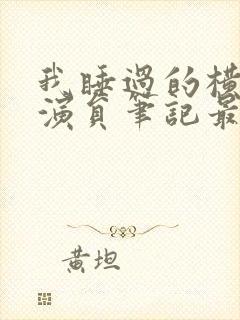 我睡過的橫
演員筆記最
黃坦